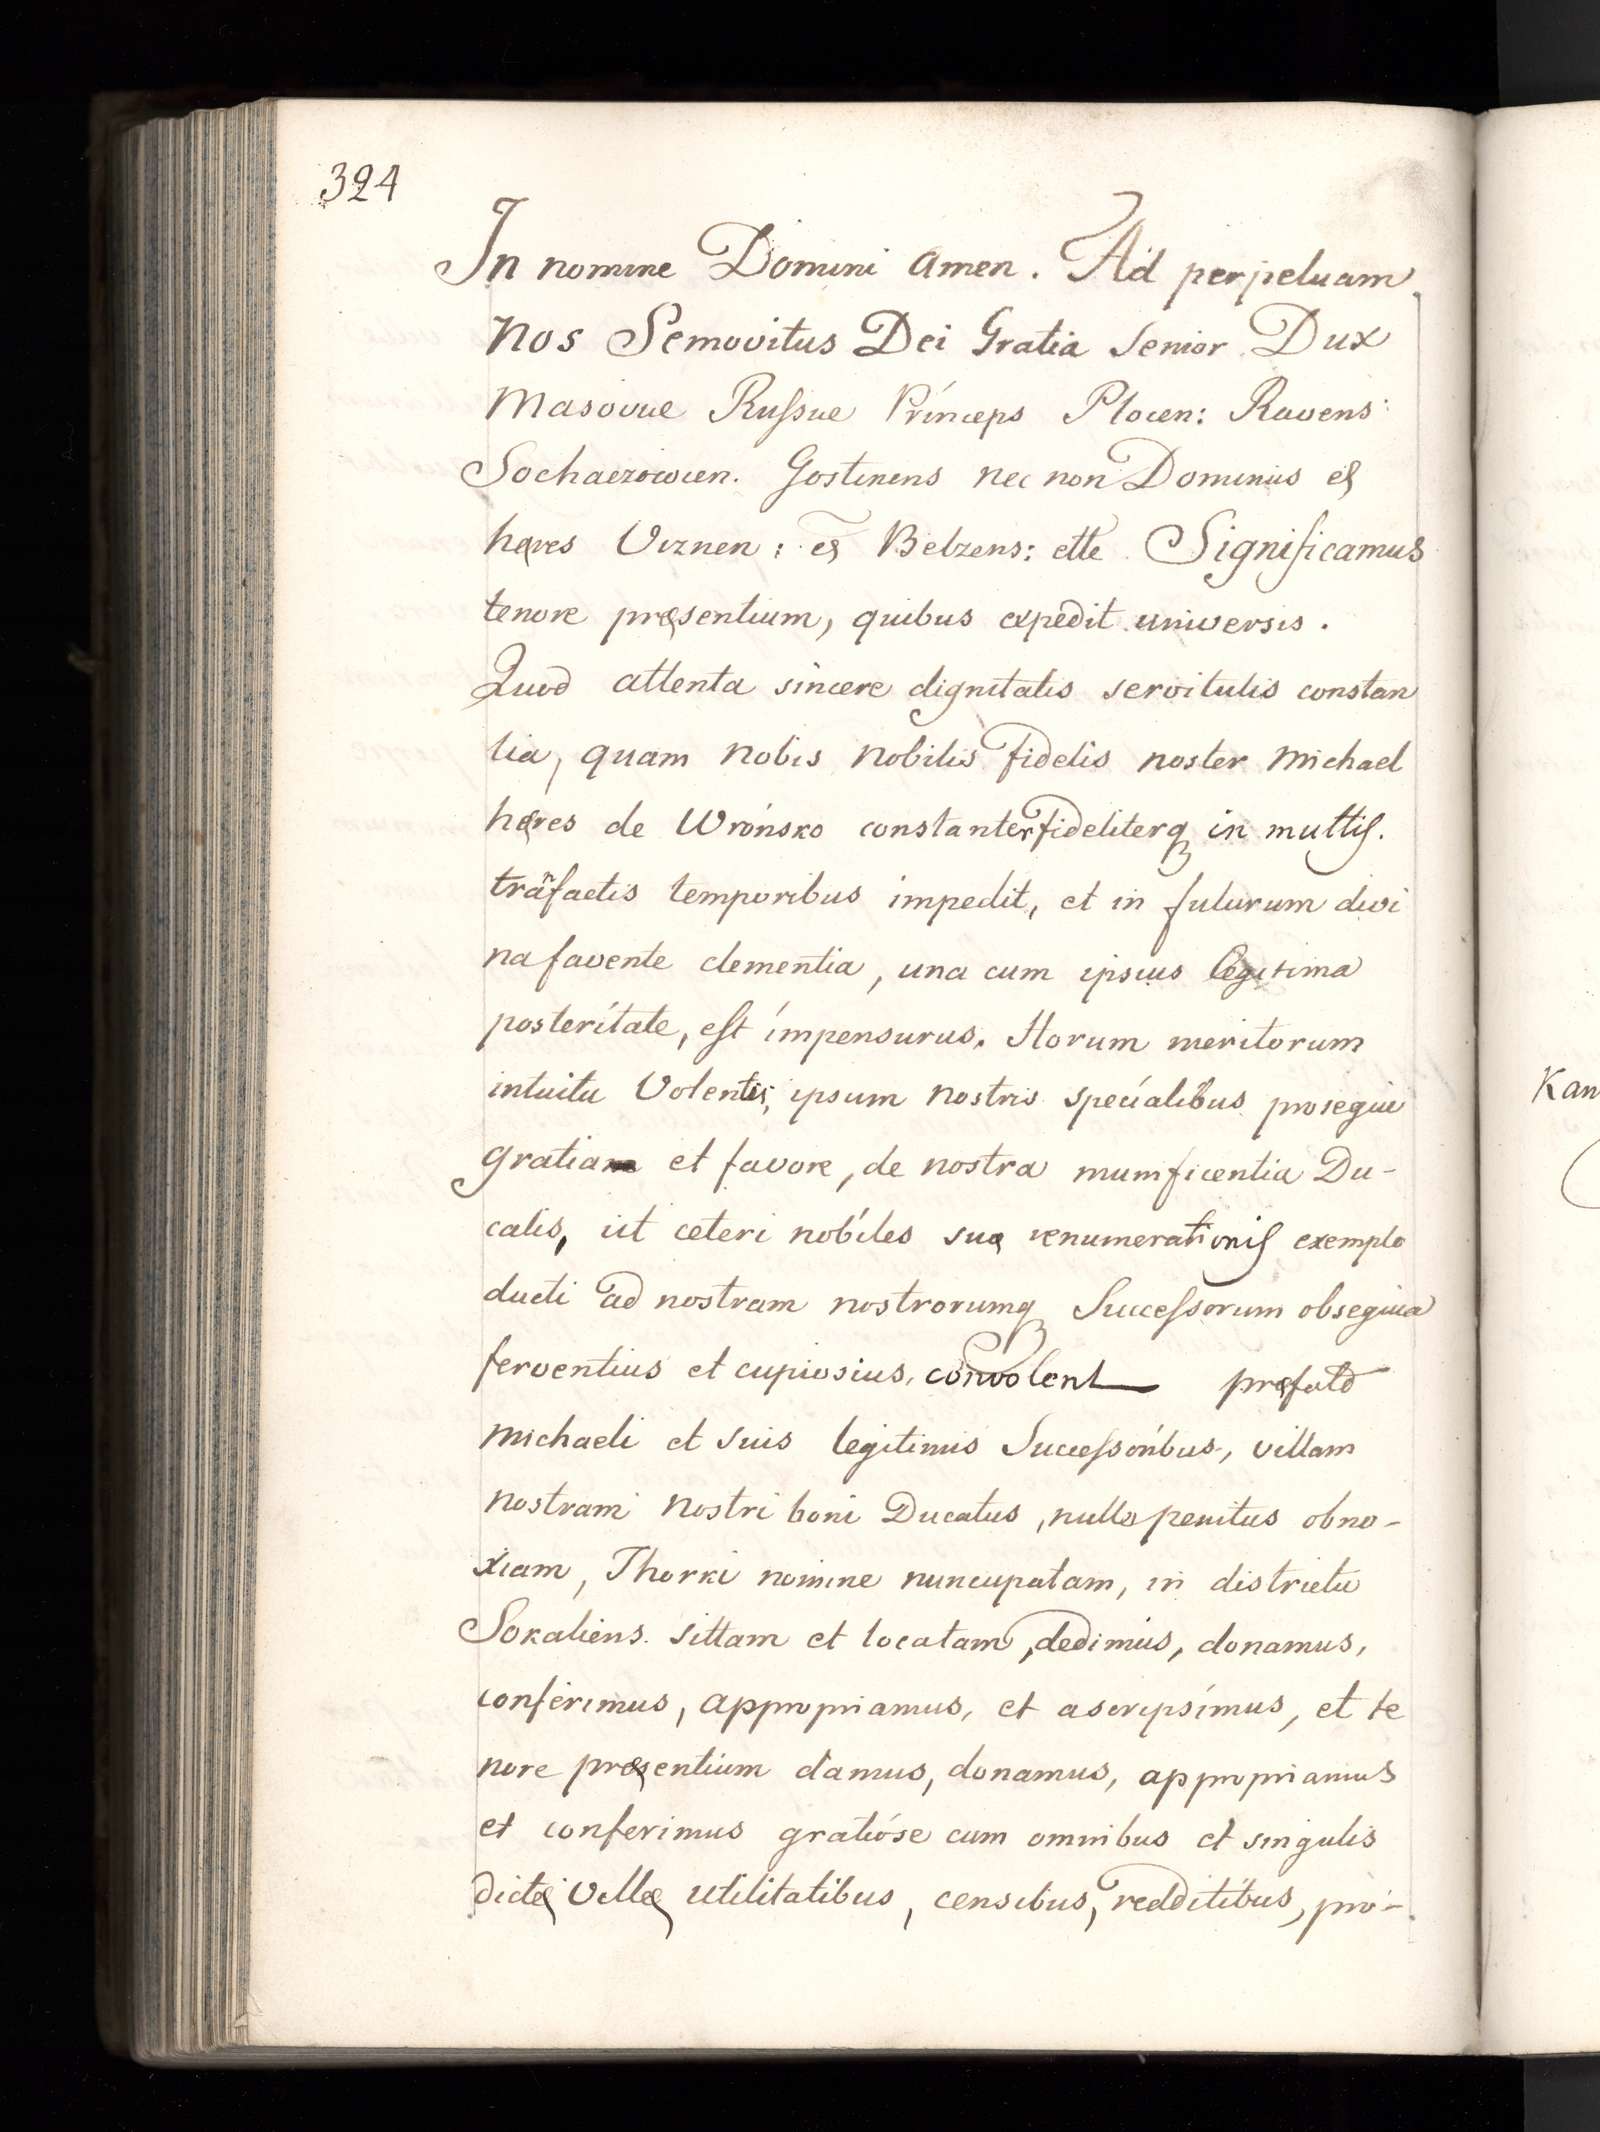 324
In nomine Domini Amen. Ad perpetuam
Nos Semovitus Dei Gratia Senior Dux
Masoviæ Russiæ Princeps Plocen: Ravens:
Sochaczowien. Gostinens nec non Dominus et
hęres Viznen: et Belzens: ette Significamus
tenore pręsentium, quibus expedit universis.
Quod attenta sincere dignitatis servitutis constan
tia, quam nobis nobilis fidelis noster Michael
hęres de Wrońsko constanter fideliterq in multis.
trãsactis temporibus impedit, et in futurum divi
na favente clementia, una cum ipsius legitima
posteritate, est impensurus. Horum meritorum
intuitu Volentes, ipsum nostris specialibus prosequi
gratia et favore, de nostra munificentia Du-
calis, ut ceteri nobiles suę renumerationis exemplo
ducti ad nostram nostrorumq Successorum obsequia
ferventius et cupiosius, convolent pręfato
Michaeli et suis legitimis Successoribus, villam
nostram nostri boni Ducatus, nullo penitus obno-
xiam, Thorki nomine nuncupatam, in districtu
Sokaliens. sittam et locatam, dedimus, donamus,
conferimus, appropriamus, et ascripsimus, et te
nore pręsentium damus, donamus, appropriamus
et conferimus gratióse cum omnibus et singulis
dictę Villę utilitatibus, censibus, redditibus, pro-
Kan